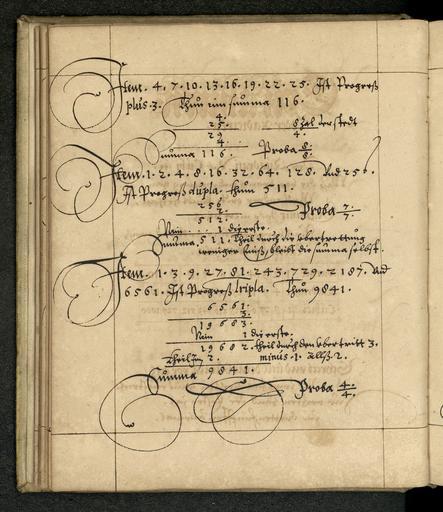 Item. 4. 7. 10. 13. 16. 19. 22. 25. Ist Progreß
plus. 3. Thun ein summa 116.
4.
25. 8 Zal der stedt
29 4.
4.
Summa 116. Proba 8/8.
Item. 1. 2. 4. 8. 16. 32. 64. 128. Und 256.
Ist Progreß dupla. thun 511.
256
2. Proba 7/7.
512.
Nim . . . 1 die erste.
Summa. 511. Theil durch die vbertrettung
weniger bleibt die summa selbst.
Item. 1. 3. 9. 27. 81. 243. 729. 2187. Und
6561. Ist Progreß tripla. Thun 9841.
6561.
3.
19683.
Nim 1 die erste.
19682. theil durch den vbertritt 3.
Theil 2. minus. 1. Allß. 2.
Summa 9841.
Proba 4/4.